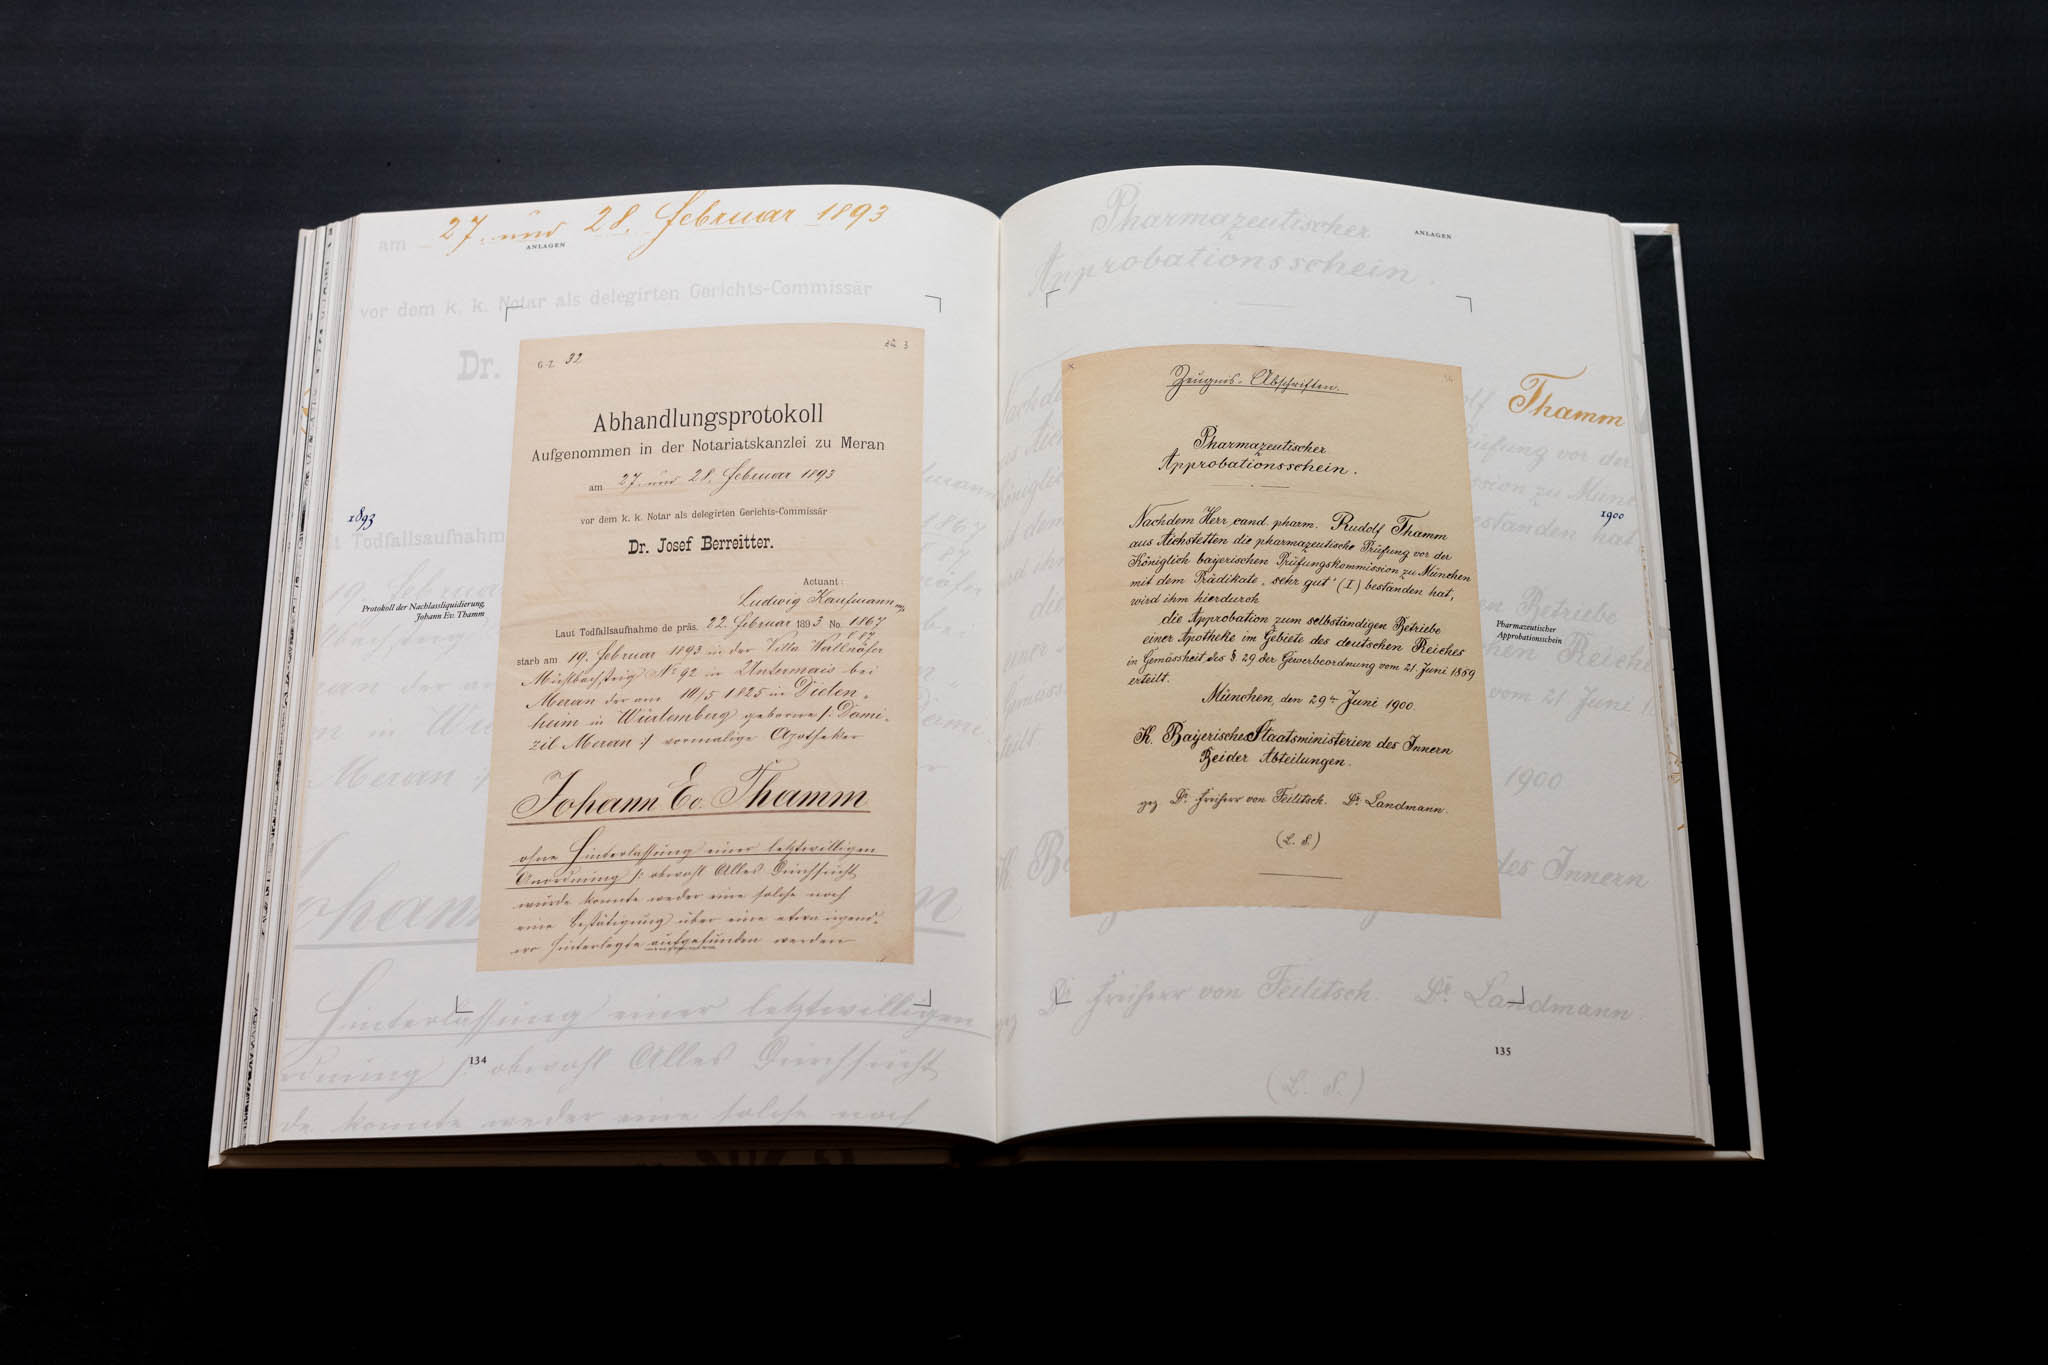 am 27. und 28. Februar 1893
ANLAGEN
vor dem k. k. Notar als delegirten Gerichts-Commissär
Dr.
G.-Z. 32
3
Abhandlungsprotokoll
Aufgenommen in der Notariatskanzlei zu Meran
am 27. und 28. Februar 1893
vor dem k. k. Notar als delegirten Gerichts-Commissär
Dr. Josef Berreitter.
Actuant:
Ludwig Kaufmann
Laut Todfallsaufnahme de präs. 22. Februar 1893 No. 1867
starb am 19. Februar 1893 in der Villa Wallnöfer
No 92 in Untermais bei
Meran der am 10/5 1825 in Dieten-
heim in Würtemberg geborene /: Domi-
zil Meran :/ vormalige Apotheker
Johann Ev. Thamm
ohne Hinterlassung einer letztwilligen
Anordnung /: obwohl Alles Durchsucht
wurde konnte weder eine solche noch
eine Bestätigung über eine etwa irgend-
wo hinterlegte aufgefunden werden
1893
Protokoll der Nachlassliquidierung,
Johann Ev. Thamm
t Todfallsaufnahm
Meran :/
Hinterlassung einer letztwilligen
rdnung /: obwohl Alles Durchsucht
de konnte weder eine solche noch
134
Pharmazeutischer
Approbationsschein.
ANLAGEN
Zeugnis-Abschriften.
Pharmazeutischer
Approbationsschein.
Nachdem Herr cand. pharm. Rudolf Thamm
aus Aichstetten die pharmazeutische Prüfung vor der
Königlich bayerischen Prüfungskommission zu München
mit dem Prädikate „sehr gut" (I) bestanden hat,
wird ihm hierdurch
die Approbation zum selbständigen Betriebe
einer Apotheke im Gebiete des deutschen Reiches
in Gemässheit des § 29 der Gewerbeordnung vom 21. Juni 1869
erteilt.
München, den 29ten Juni 1900.
K. Bayerisches Staatsministerien des Innern
Beider Abteilungen.
gez Dr. Freiherr von Feilitsch. Dr. Landmann.
(L. S.)
Thamm
1900
Pharmazeutischer
Approbationsschein
vom 21 Juni 18
1900
des Innern
Dr. Freiherr von Feilitsch. Dr. Landmann.
(L. S.)
135